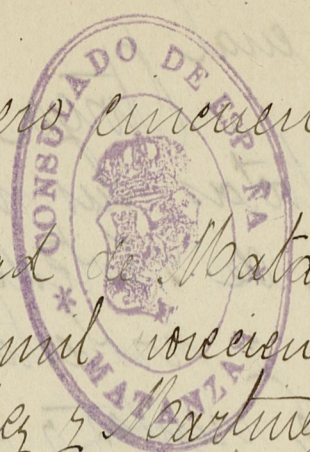 CONSULADO DE ESPAÑA
* MATANZAS
ero cincuen
ad de Mata
mil
ez y Martine